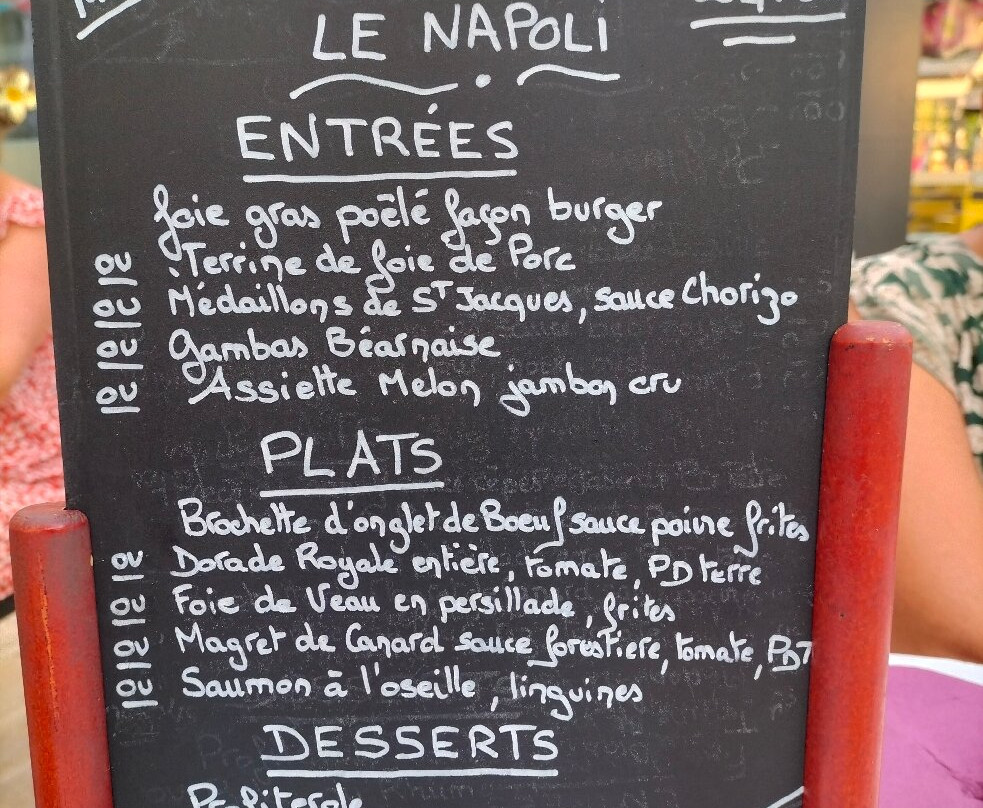 LE NAPOLI
ENTRÉES
foie gras poêlé façon burger
Terrine de foie de Porc
Médaillons de ST Jacques, sauce Chorizo
Gambas Béarnaise
Assiette Melon jambon cru
PLATS
Brochette d'onglet de Boeuf sauce poivre frites
Dorade Royale entière, tomate, PD terre
Foie de Veau en persillade, frites
Magret de Canard sauce forestiere, tomate, PDT
Saumon à l'oseille, linguines
DESSERTS
Profiterole